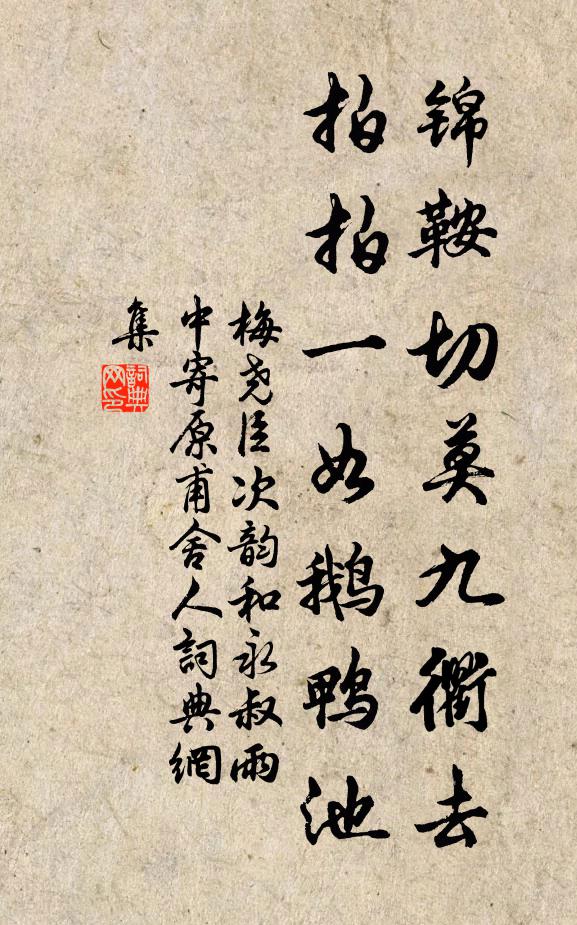 锦鞍切莫九衢去
拍拍一如鹅鸭池
梅尧臣次韵和永叔雨
中寄原甫舍人詞典網
集
詞典
网印